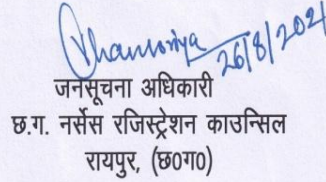 26/8/2021
जनसूचना अधिकारी
छ.ग. नर्सेस रजिस्ट्रेशन काउन्सिल
रायपुर, (छ0ग0)